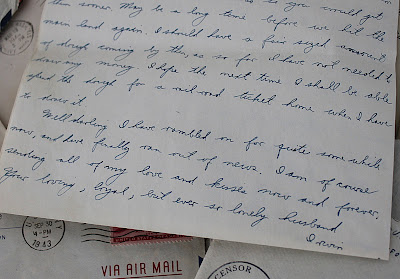 so you could get
them sooner. May be a long time before we hit the
main land again. I should have a fair sized amount
of dough coming by then, as so far I have not needed to
draw any money. I hope the next time I shall be able
to spend the dough for a rail-road ticket home when I have
to draw it.
Well darling I have rambled on for quite some while
now, and have finally ran out of news. I am of course
sending all of my love and kisses now and forever.
Your loving, loyal, but ever so lonely husband
Irwin
SEP 30
4-PM
1943
VIA AIR MAIL
CENSOR